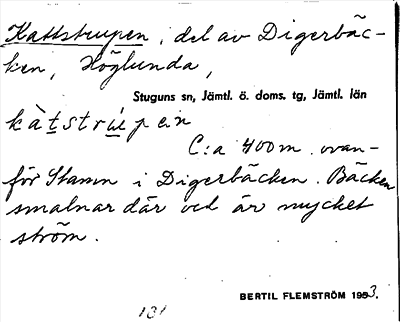 Kattstrupen, del av Digerbäc-
ken, Höglunda,
Stuguns sn, Jämtl. ö. doms. tg, Jämtl. län
kàtstrúpein
C:a 400 m. ovan-
för Stamn i Digerbäcken. Bäcken
smalnar där och är mycket
ström.
BERTIL FLEMSTRÖM 1953.
131